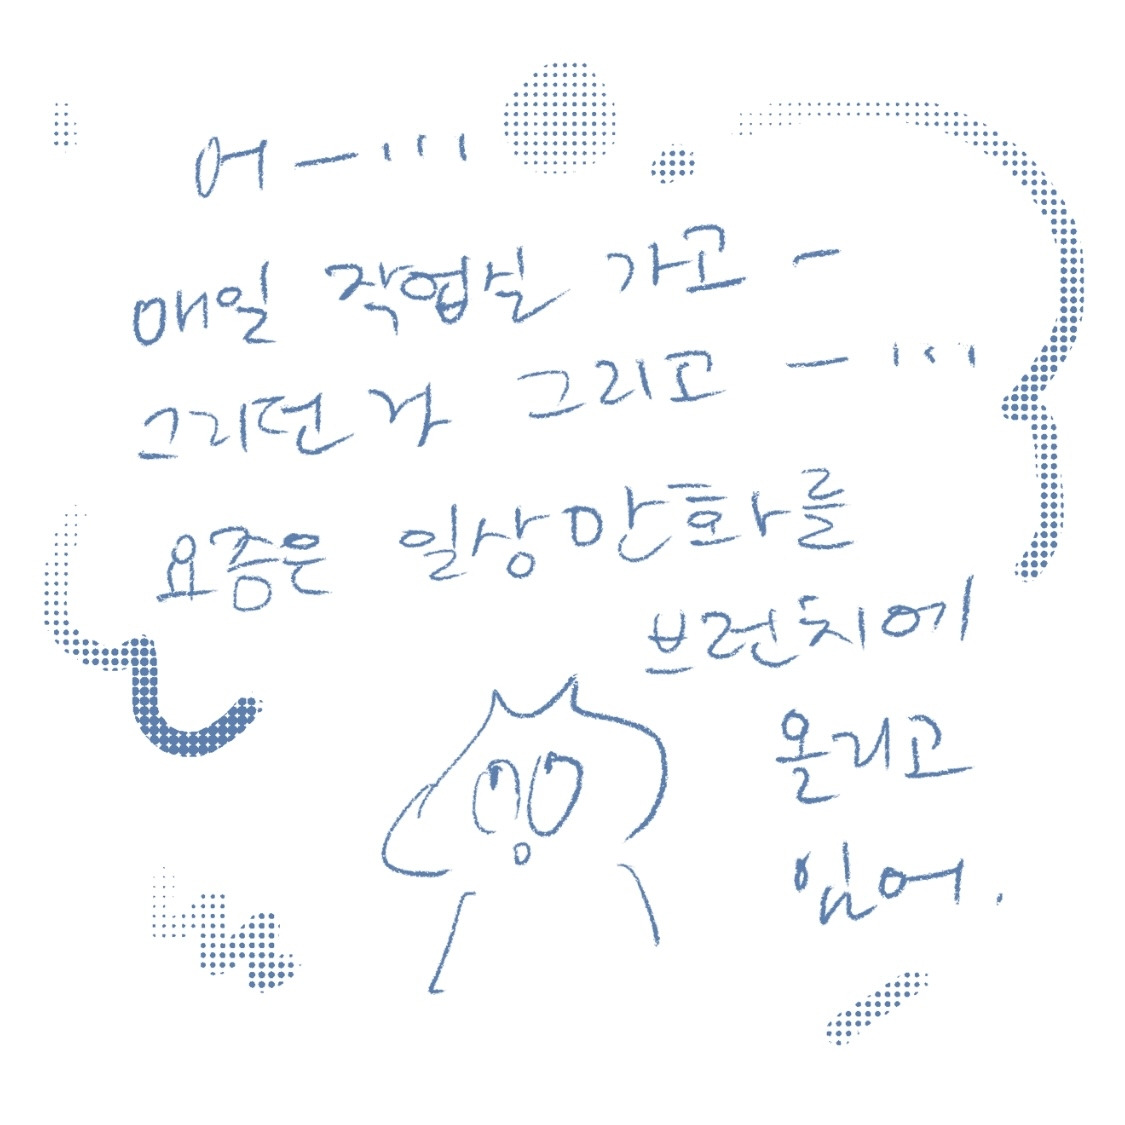 어 — ···
매일 작업실 가고 -
그리던 거 그리고 — ···
요즘은 일상만화를
브런치에
올리고
있어.